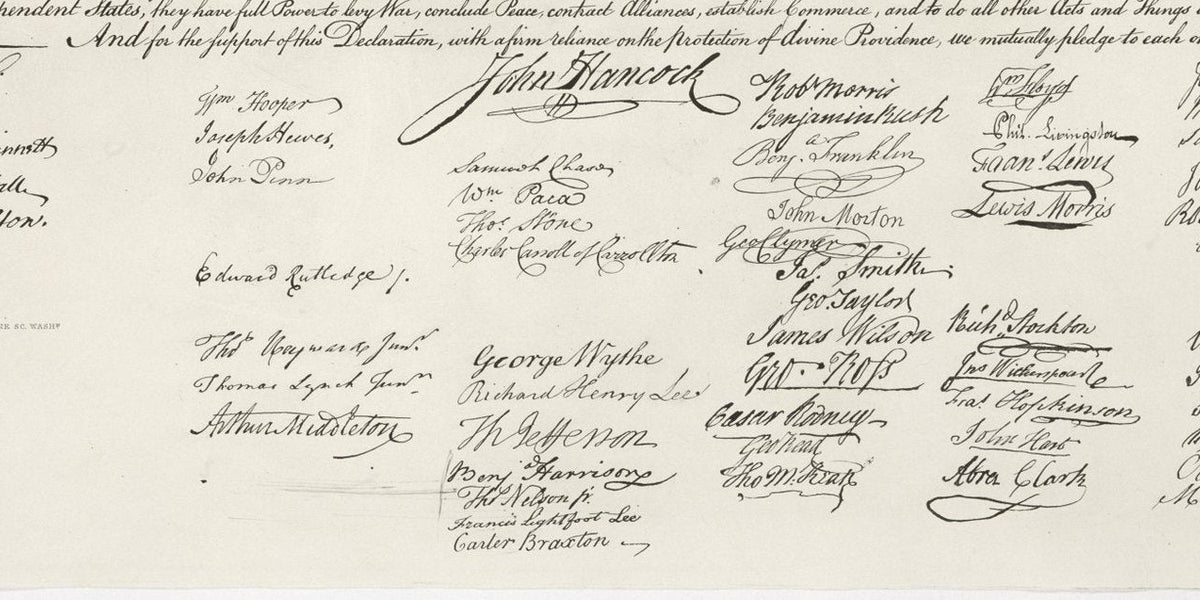 hendent States, they have full Power to levy War, conclude Peace, contract Alliances, establish Commerce, and to do all other Acts and Things
And for the support of this Declaration, with a firm reliance on the protection of divine Providence, we mutually pledge to each
ton.
ER SC. WASHn
Wm Hooper
Joseph Hewes,
John Penn
Edward Rutledge /.
Thos Heyward Junr.
Thomas Lynch Junr
Arthur Middleton
John Hancock
Samuel Chase
Wm. Paca
Thos. Stone
Charles Carroll of Carrollton
George Wythe
Richard Henry Lee
Th Jefferson
Benja Harrison
Thos Nelson jr.
Francis Lightfoot Lee
Carter Braxton
Robt Morris
Benjamin Rush
Benja. Franklin
John Morton
Geo Clymer
Jas. Smith.
Geo. Taylor
James Wilson
Geo. Ross
Caesar Rodney
Geo Read
Tho M:Kean
Wm Floyd
Phil. Livingston
Frans. Lewis
Lewis Morris
Richd. Stockton
Jno Witherspoon
Fras. Hopkinson
John Hart
Abra Clark